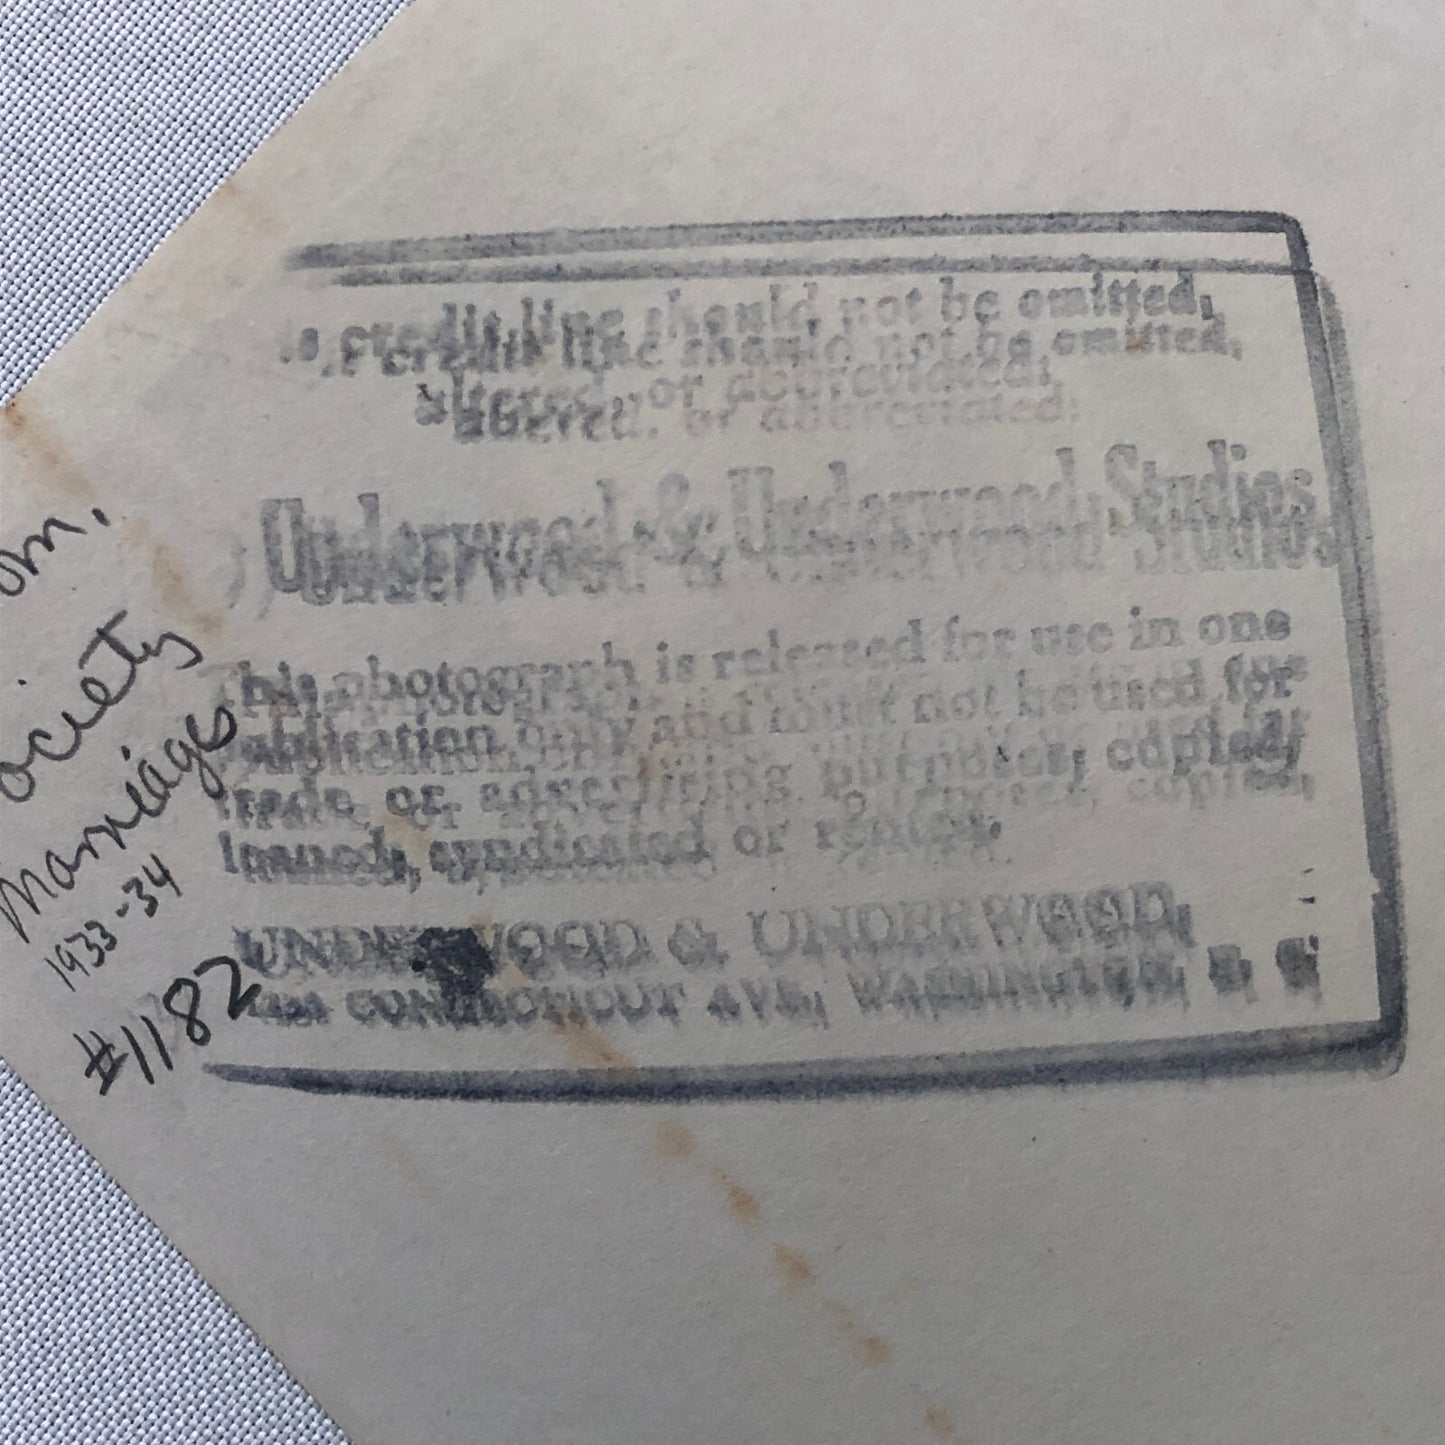 credit line should not be omitted,
altered, or abbreviated:
Underwood & Underwood Studios
This photograph is released for use in one
publication only and must not be used for
trade or advertising purposes, copied,
loaned, syndicated or rented.
UNDERWOOD & UNDERWOOD,
CONNECTICUT AVE, WASHINGTON, D. C.
om.
ociety
Marriages
1933-34
#1182